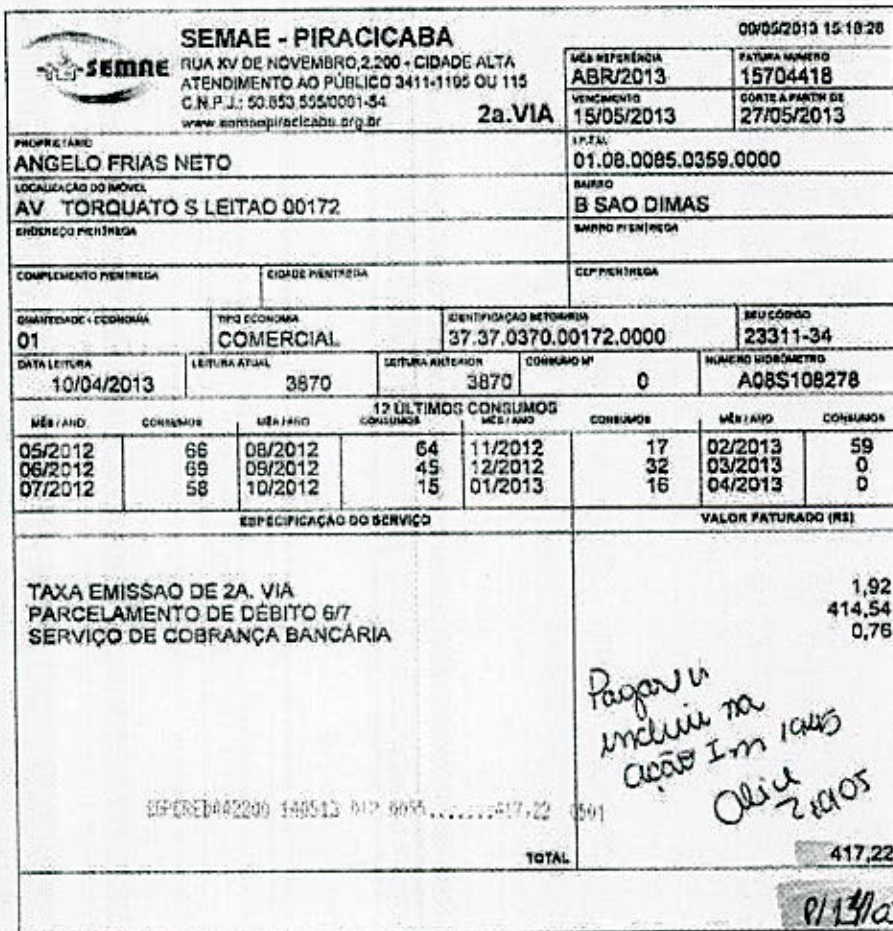 SEMAE
SEMAE - PIRACICABA
RUA XV DE NOVEMBRO,2.200 - CIDADE ALTA
ATENDIMENTO AO PÚBLICO 3411-1105 OU 115
C.N.P.J.: 50.853.555/0001-54
www.semaepiracicaba.org.br
2a.VIA
09/05/2013 15:18:28
MÊS REFERÊNCIA
ABR/2013
FATURA NUMERO
15704418
VENCIMENTO
15/05/2013
CORTE A PARTIR DE
27/05/2013
PROPRIETÁRIO
ANGELO FRIAS NETO
I.P.T.U.
01.08.0085.0359.0000
LOCALIZAÇÃO DO IMÓVEL
AV TORQUATO S LEITAO 00172
BAIRRO
B SAO DIMAS
ENDEREÇO P/ENTREGA
BAIRRO P/ENTREGA
COMPLEMENTO P/ENTREGA
CIDADE P/ENTREGA
CEP P/ENTREGA
QUANTIDADE - ECONOMIA
01
TIPO ECONOMIA
COMERCIAL
IDENTIFICAÇÃO SETORIAL
37.37.0370.00172.0000
SEU CÓDIGO
23311-34
DATA LEITURA
10/04/2013
LEITURA ATUAL
3870
LEITURA ANTERIOR
3870
CONSUMO M³
0
NUMERO HIDRÔMETRO
A08S108278
12 ÚLTIMOS CONSUMOS
MÊS / ANO CONSUMOS MÊS / ANO CONSUMOS MÊS / ANO CONSUMOS MÊS / ANO CONSUMOS
05/2012 66 08/2012 64 11/2012 17 02/2013 59
06/2012 69 09/2012 45 12/2012 32 03/2013 0
07/2012 58 10/2012 15 01/2013 16 04/2013 0
ESPECIFICAÇÃO DO SERVIÇO
VALOR FATURADO (R$)
TAXA EMISSAO DE 2A. VIA 1,92
PARCELAMENTO DE DÉBITO 6/7 414,54
SERVIÇO DE COBRANÇA BANCÁRIA 0,76
Pagar
incluir na
ação
Alice
140513 417,22
TOTAL 417,22